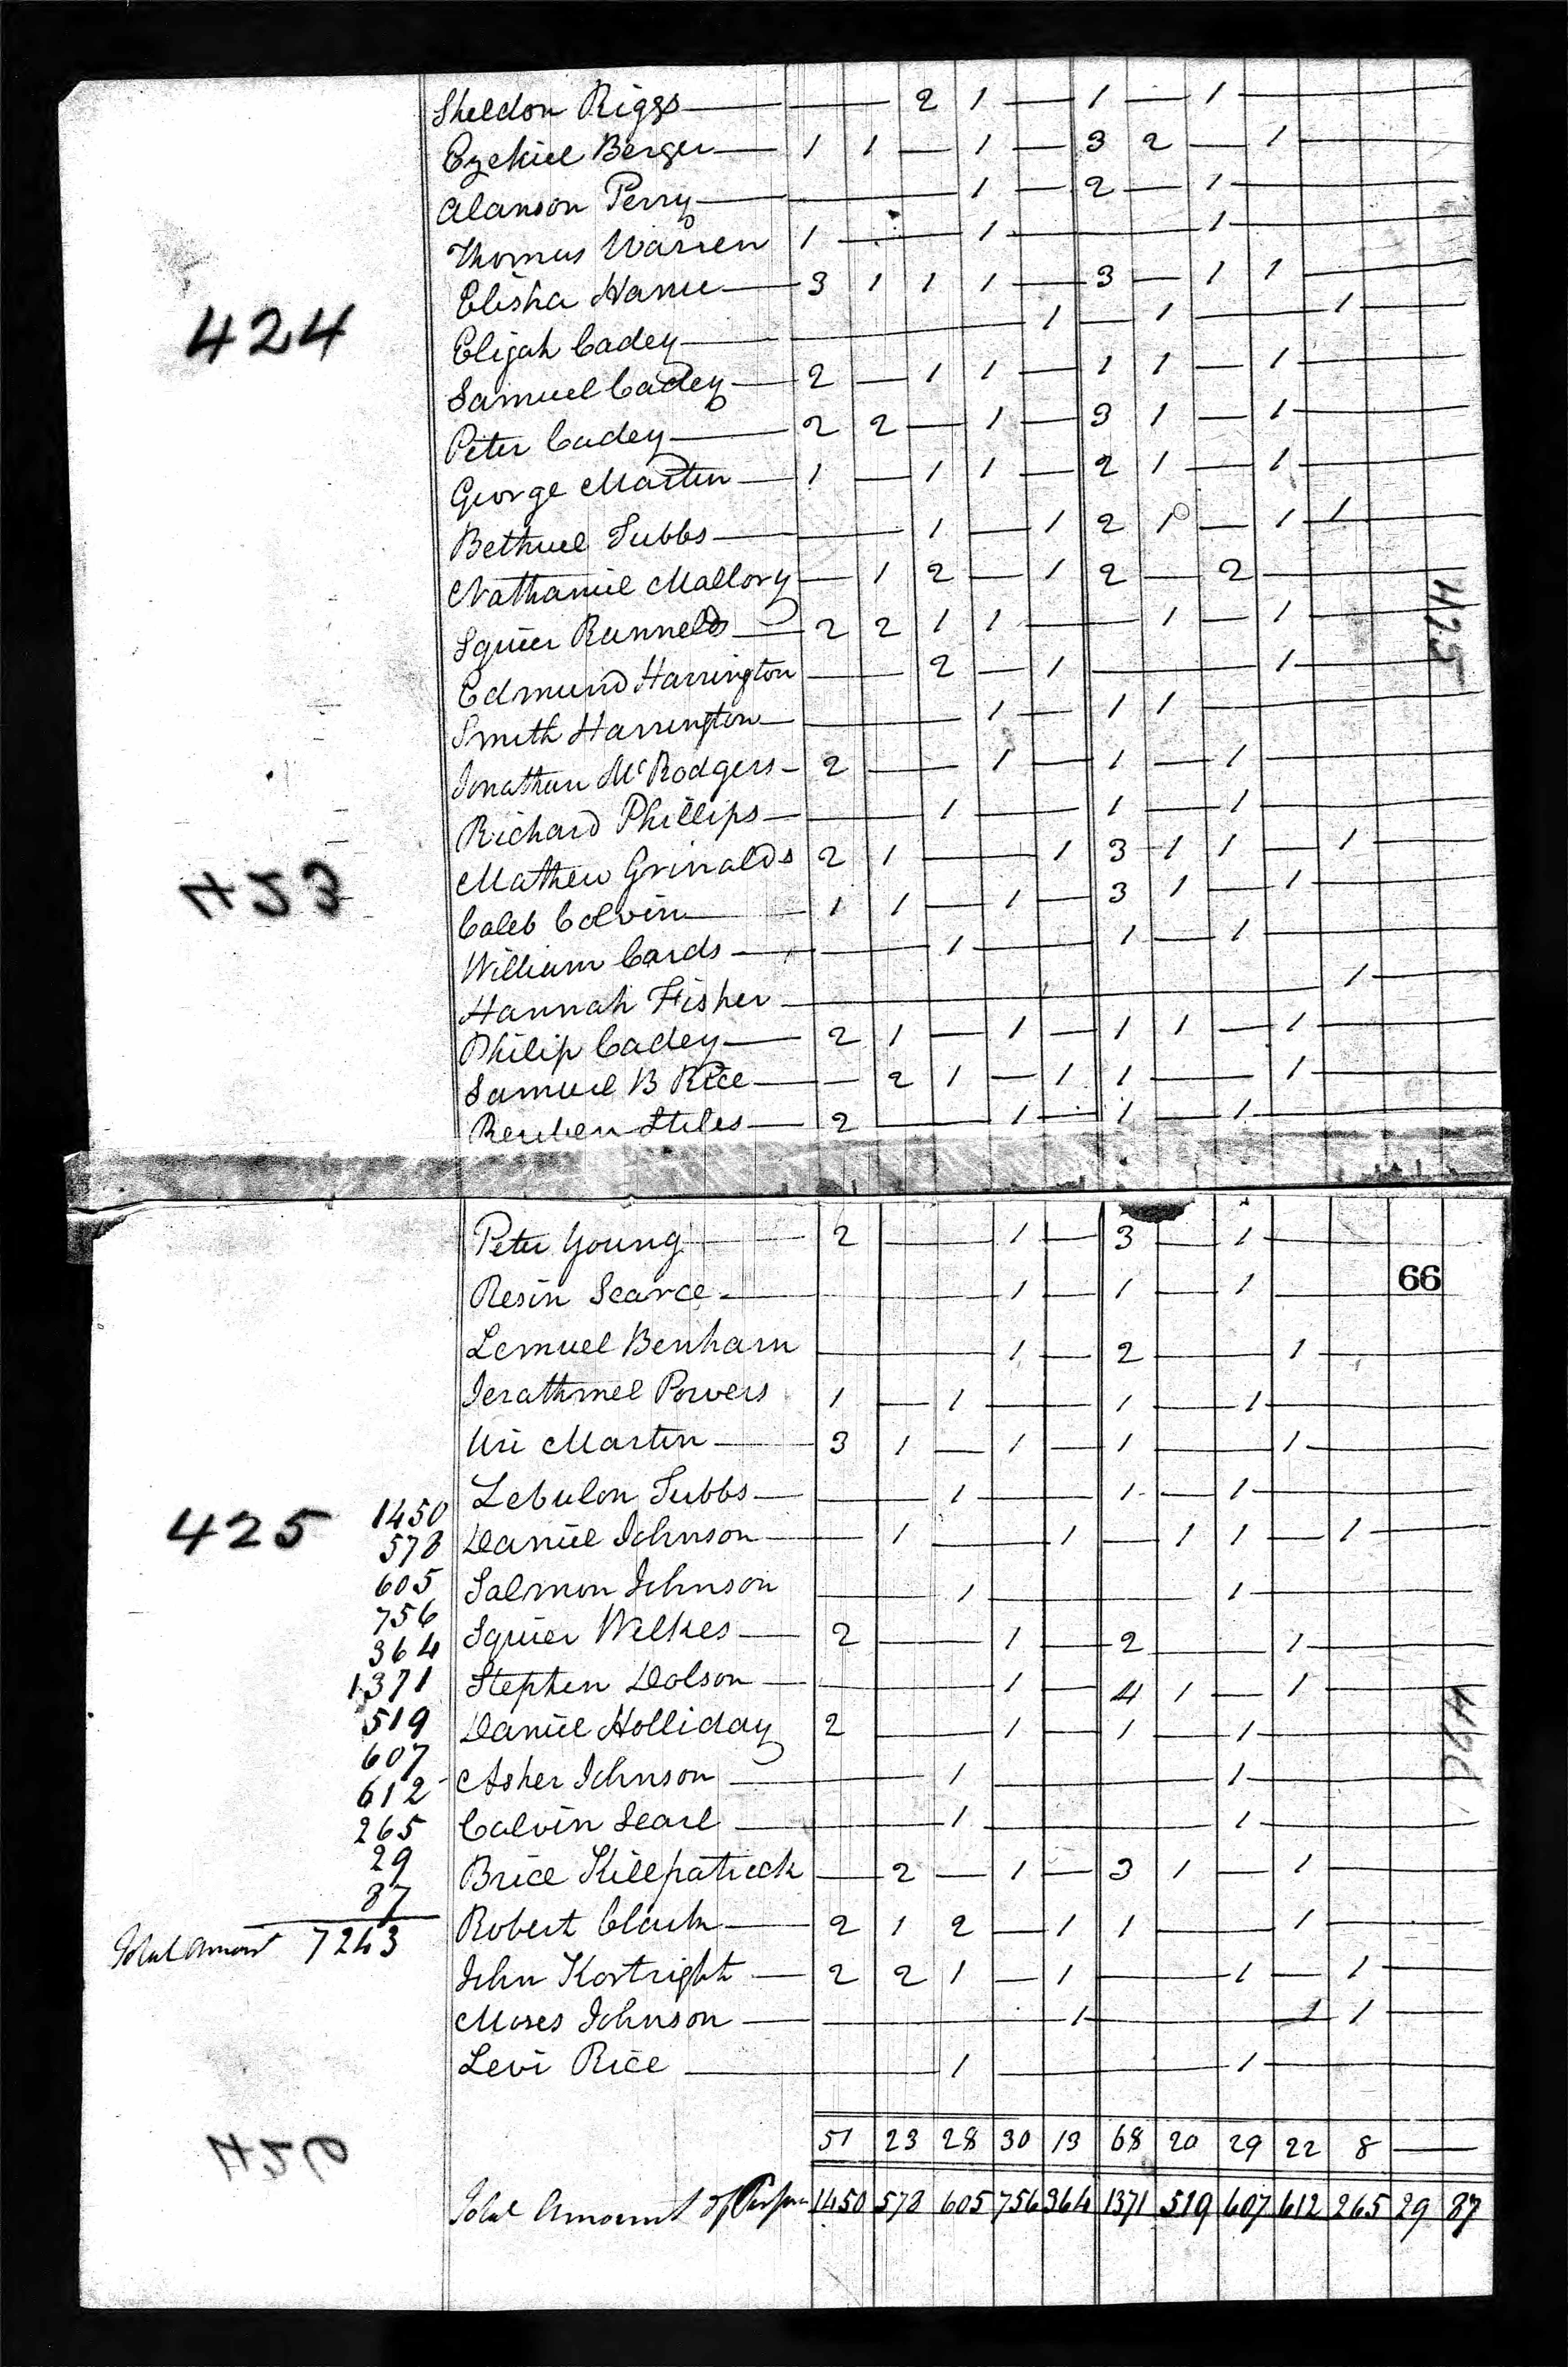 Sheldon Riggs — 2 1 — 1 — 1 —
Ezekiel Berger — 1 1 — 1 — 3 2 — 1 —
Alanson Perry — 1 — 2 — 1 —
Thomas Warren 1 — 1 — 1 —
Elisha — 3 1 1 1 — 3 — 1 1 —
424
Elijah Cadey — 1 — 1 — 1 —
Samuel Cadey — 2 — 1 1 — 1 1 — 1 —
Peter Cadey — 2 2 — 1 — 3 1 — 1 —
George Martin — 1 — 1 1 — 2 1 — 1 —
Bethuel Tubbs — 1 — 1 2 1 — 1 1 —
Nathaniel Mallory — 1 2 — 1 2 — 2 —
425
Squier Runnels — 2 2 1 1 — 1 — 1 —
Edmund Harrington — 2 — 1 — 1 —
Smith Harrington — 1 — 1 1 —
Jonathan McRodgers — 2 — 1 — 1 — 1 —
Richard Phillips — 1 — 1 — 1 —
Mathew Grinalds 2 1 — 1 3 1 1 — 1 —
423
Caleb Colvin — 1 1 — 1 — 3 1 — 1 —
William Cards — 1 — 1 — 1 —
Hannah Fisher — 1 —
Philip Cadey — 2 1 — 1 — 1 1 — 1 —
Samuel B Rice — 2 1 — 1 1 — 1 —
Reuben Stiles — 2 — 1 — 1 — 1 —
Peter Young — 2 — 1 — 3 — 1 —
66
Resin Scarce — 1 — 1 — 1 —
Lemuel Benham — 1 — 2 — 1 —
Jerathmel Powers 1 — 1 — 1 — 1 —
Uri Martin — 3 1 — 1 — 1 — 1 —
Zebulon Tubbs — 1 — 1 — 1 —
425
1450
578 Daniel Johnson — 1 — 1 — 1 1 — 1 —
605 Salmon Johnson — 1 — 1 —
756
364 Squier Wilkes — 2 — 1 — 2 — 1 —
1371 Stephen Dolson — 1 — 4 1 — 1 —
519 Daniel Holliday 2 — 1 — 1 — 1 —
607
612 Asher Johnson — 1 — 1 —
265 Calvin Searl — 1 — 1 —
29 Brice Killpatrick — 2 — 1 — 3 1 — 1 —
87
Robert Clark — 2 1 2 — 1 1 — 1 —
Total Amount 7243
John Kortright — 2 2 1 — 1 — 1 — 1 —
Moses Johnson — 1 — 1 1 —
Levi Rice — 1 — 1 —
426
51 23 28 30 13 68 20 29 22 8 —
Total Amount of 1450 578 605 756 364 1371 519 607 612 265 29 87